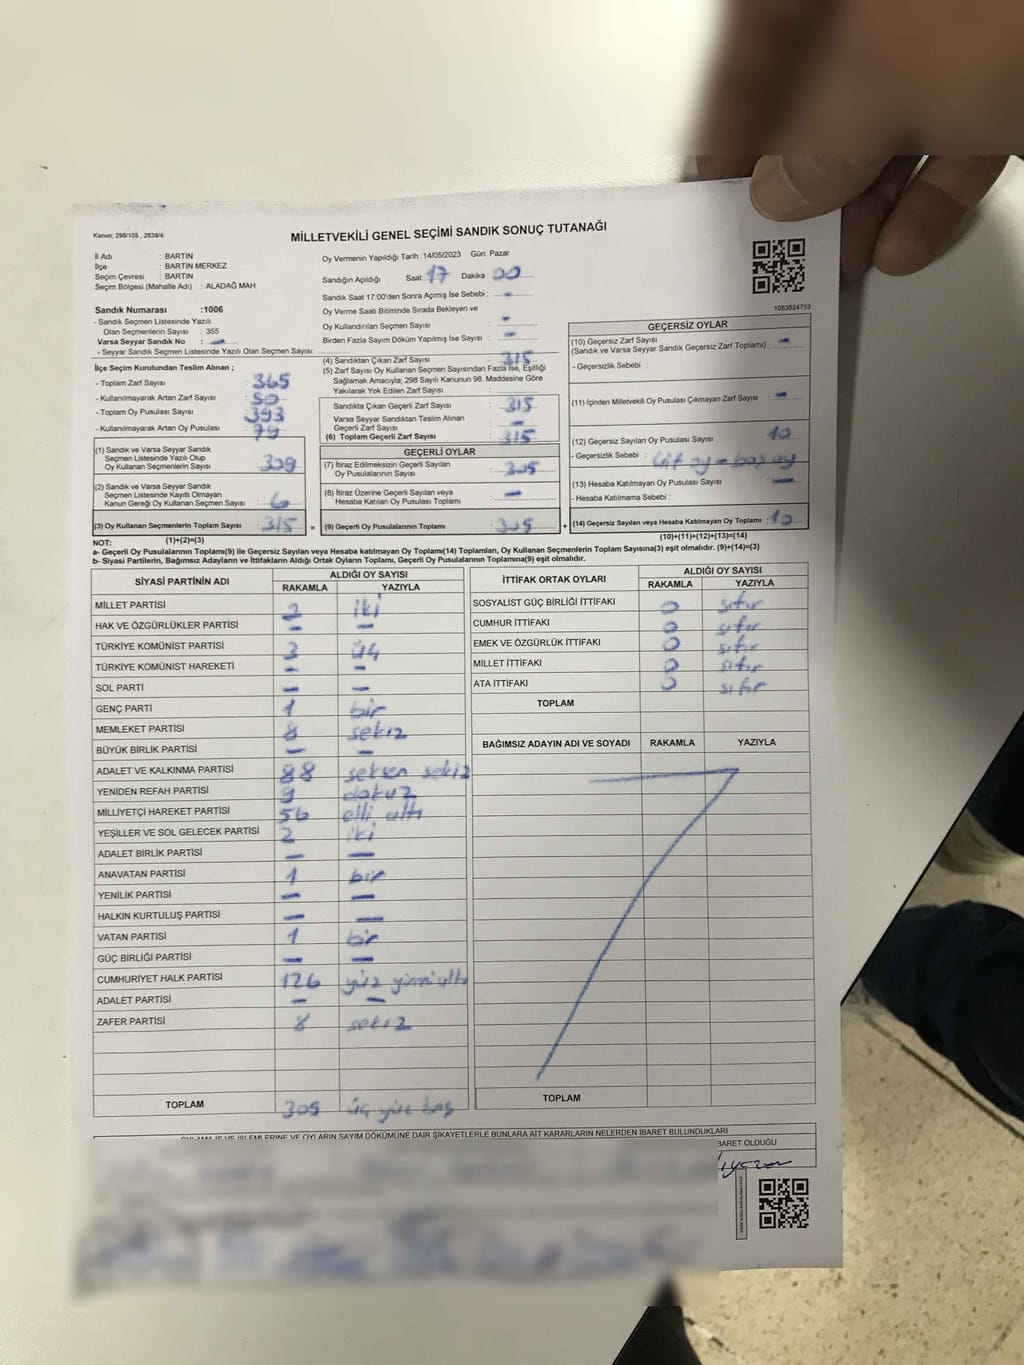 Kanun; 298/105 , 2839/4
MİLLETVEKİLİ GENEL SEÇİMİ SANDIK SONUÇ TUTANAĞI
İl Adı : BARTIN
İlçe : BARTIN MERKEZ
Seçim Çevresi : BARTIN
Seçim Bölgesi (Mahalle Adı) : ALADAĞ MAH
Sandık Numarası :1006
- Sandık Seçmen Listesinde Yazılı
Olan Seçmenlerin Sayısı : 355
Varsa Seyyar Sandık No : -
- Seyyar Sandık Seçmen Listesinde Yazılı Olan Seçmen Sayısı:
İlçe Seçim Kurulundan Teslim Alınan ;
- Toplam Zarf Sayısı : 365
- Kullanılmayarak Artan Zarf Sayısı : 50
- Toplam Oy Pusulası Sayısı : 393
- Kullanılmayarak Artan Oy Pusulası : 79
(1) Sandık ve Varsa Seyyar Sandık
Seçmen Listesinde Yazılı Olup
Oy Kullanan Seçmenlerin Sayısı : 309
(2) Sandık ve Varsa Seyyar Sandık
Seçmen Listesinde Kayıtlı Olmayan
Kanun Gereği Oy Kullanan Seçmen Sayısı : 6
(3) Oy Kullanan Seçmenlerin Toplam Sayısı : 315 =
(1)+(2)=(3)
Oy Vermenin Yapıldığı Tarih : 14/05/2023 Gün: Pazar
Sandığın Açıldığı Saat : 17 Dakika : 00
Sandık Saat 17:00'den Sonra Açımış İse Sebebi : -
Oy Verme Saati Bitiminde Sırada Bekleyen ve
Oy Kullandırılan Seçmen Sayısı : -
Birden Fazla Sayım Döküm Yapılmış İse Sayısı : -
(4) Sandıktan Çıkan Zarf Sayısı : 315
(5) Zarf Sayısı Oy Kullanan Seçmen Sayısından Fazla İse, Eşitliği
Sağlamak Amacıyla; 298 Sayılı Kanunun 98. Maddesine Göre
Yakılarak Yok Edilen Zarf Sayısı : -
Sandıkta Çıkan Geçerli Zarf Sayısı : 315
Varsa Seyyar Sandıktan Teslim Alınan
Geçerli Zarf Sayısı : -
(6) Toplam Geçerli Zarf Sayısı : 315
GEÇERLİ OYLAR
(7) İtiraz Edilmeksizin Geçerli Sayılan
Oy Pusulalarının Sayısı : 305
(8) İtiraz Üzerine Geçerli Sayılan veya
Hesaba Katılan Oy Pusulası Toplamı : -
(9) Geçerli Oy Pusulalarının Toplamı : 305 +
1083624753
GEÇERSİZ OYLAR
(10) Geçersiz Zarf Sayısı : -
(Sandık ve Varsa Seyyar Sandık Geçersiz Zarf Toplamı)
- Geçersizlik Sebebi :
(11) İçinden Milletvekili Oy Pusulası Çıkmayan Zarf Sayısı : -
(12) Geçersiz Sayılan Oy Pusulası Sayısı : 10
- Geçersizlik Sebebi : çift oy - boş oy
(13) Hesaba Katılmayan Oy Pusulası Sayısı : -
- Hesaba Katılmama Sebebi :
(14) Geçersiz Sayılan veya Hesaba Katılmayan Oy Toplamı : 10
(10)+(11)+(12)+(13)=(14)
NOT:
a- Geçerli Oy Pusulalarının Toplamı(9) ile Geçersiz Sayılan veya Hesaba katılmayan Oy Toplamı(14) Toplamları, Oy Kullanan Seçmenlerin Toplam Sayısına(3) eşit olmalıdır. (9)+(14)=(3)
b- Siyasi Partilerin, Bağımsız Adayların ve İttifakların Aldığı Ortak Oyların Toplamı, Geçerli Oy Pusulalarının Toplamına(9) eşit olmalıdır.
SİYASİ PARTİNİN ADI ALDIĞI OY SAYISI
RAKAMLA YAZIYLA
MİLLET PARTİSİ 2 iki
HAK VE ÖZGÜRLÜKLER PARTİSİ - -
TÜRKİYE KOMÜNİST PARTİSİ 3 üç
TÜRKİYE KOMÜNİST HAREKETİ - -
SOL PARTİ - -
GENÇ PARTİ 1 bir
MEMLEKET PARTİSİ 8 sekiz
BÜYÜK BİRLİK PARTİSİ - -
ADALET VE KALKINMA PARTİSİ 88 seksen sekiz
YENİDEN REFAH PARTİSİ 9 dokuz
MİLLİYETÇİ HAREKET PARTİSİ 56 elli altı
YEŞİLLER VE SOL GELECEK PARTİSİ 2 iki
ADALET BİRLİK PARTİSİ - -
ANAVATAN PARTİSİ 1 bir
YENİLİK PARTİSİ - -
HALKIN KURTULUŞ PARTİSİ - -
VATAN PARTİSİ 1 bir
GÜÇ BİRLİĞİ PARTİSİ - -
CUMHURİYET HALK PARTİSİ 126 yüz yirmi altı
ADALET PARTİSİ - -
ZAFER PARTİSİ 8 sekiz
TOPLAM 305 üç yüz beş
İTTİFAK ORTAK OYLARI ALDIĞI OY SAYISI
RAKAMLA YAZIYLA
SOSYALİST GÜÇ BİRLİĞİ İTTİFAKI 0 sıfır
CUMHUR İTTİFAKI 0 sıfır
EMEK VE ÖZGÜRLÜK İTTİFAKI 0 sıfır
MİLLET İTTİFAKI 0 sıfır
ATA İTTİFAKI 0 sıfır
TOPLAM
BAĞIMSIZ ADAYIN ADI VE SOYADI RAKAMLA YAZIYLA
TOPLAM
OYLAMA İŞ VE İŞLEMLERİNE VE OYLARIN SAYIM DÖKÜMÜNE DAİR ŞİKAYETLERLE BUNLARA AİT KARARLARIN NELERDEN İBARET BULUNDUKLARI
BARET OLDUĞU